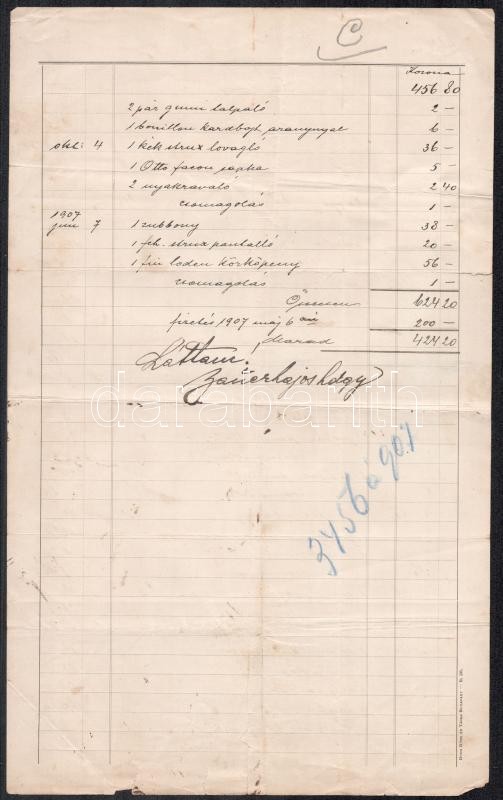 C
Korona
456 80
2 pár gumi talpaló 2 —
1 bouillon kardbojt aranynyal 6 —
okt: 4 1 kék strux lovagló 36 —
1 Otto facon sapka 5 —
2 nyakravaló 2 40
csomagolás 1 —
1907
jun 7 1 zubbony 38 —
1 feh. strux pantalló 20 —
1 fin loden körköpeny 56 —
csomagolás 1 —
Összesen 624 20
fizetés 1907 máj 6 án 200 —
Marad 424 20
Láttam:
Lajos hdgy
darabanth
3456